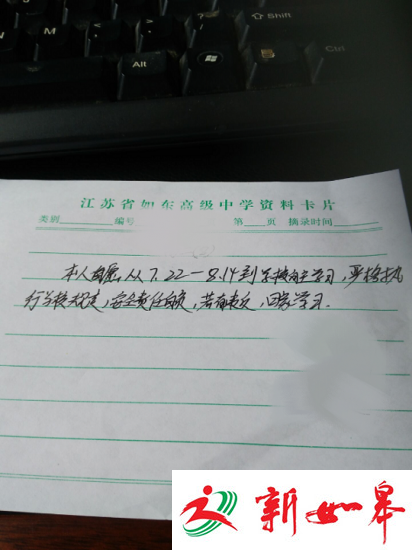 Shift
Alt
Ctrl
江苏省如东高级中学资料卡片
类别 编号 第 页 摘录时间
本人自愿从7.22—8.14到学校自主学习,严格执
行学校规定,安全责任自负,若有违反,回家学习.
新如皋